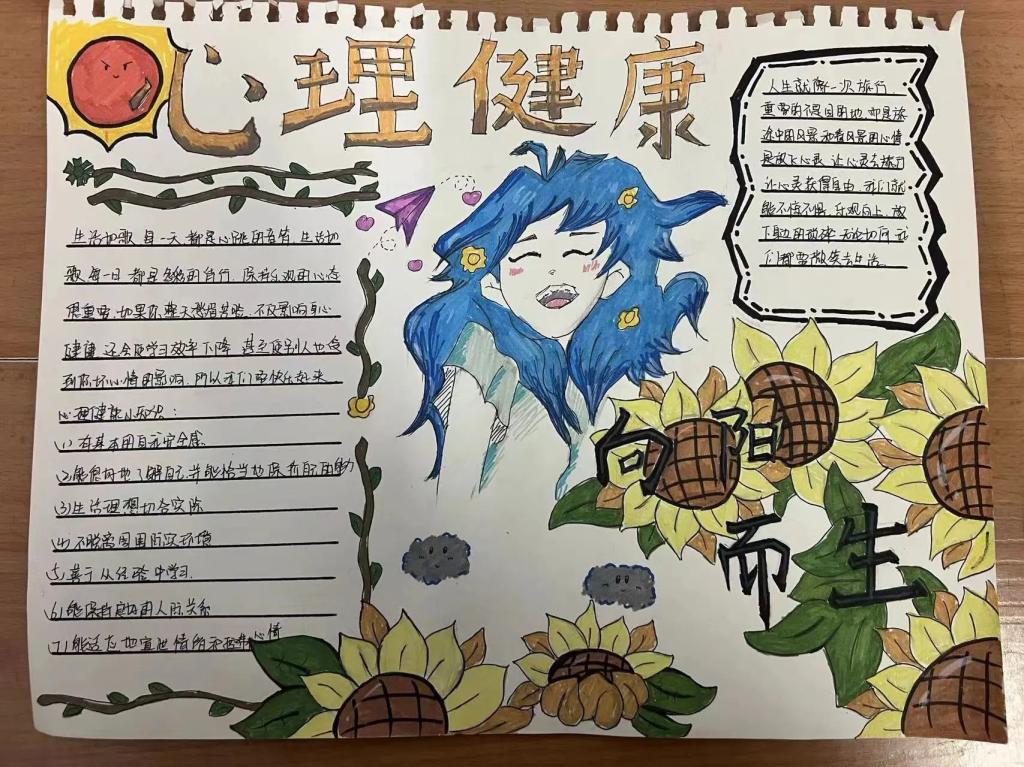 心理健康
生活如歌每一天都是心跳的音符,生活如
歌,每一日都是的自行.保持乐观的心态
很重要,如果你整天愁眉苦脸,不仅影响身心
健康,还会使学习效率下降,甚至使别人也受
到你坏心情的影响.所以我们要快乐起来
心理健康小知识:
(1)有基本的自我安全感.
(2)能很好地了解自己,并能恰当地保持的能力
(3)生活理想切合实际
(4)不脱离周围现实环境
(5)善于从经验中学习.
(6)能保持良好的人际关系
(7)能适度地宣泄情绪和心情
人生就像一次旅行
重要的不是目的地,而是旅
途中的风景和看风景的心情
是放飞心灵,让心灵去旅行
让心灵获得自由,我们就
能不慌不惧,乐观向上,放
下无论如何,我
们都要微笑去生活
向阳
而生